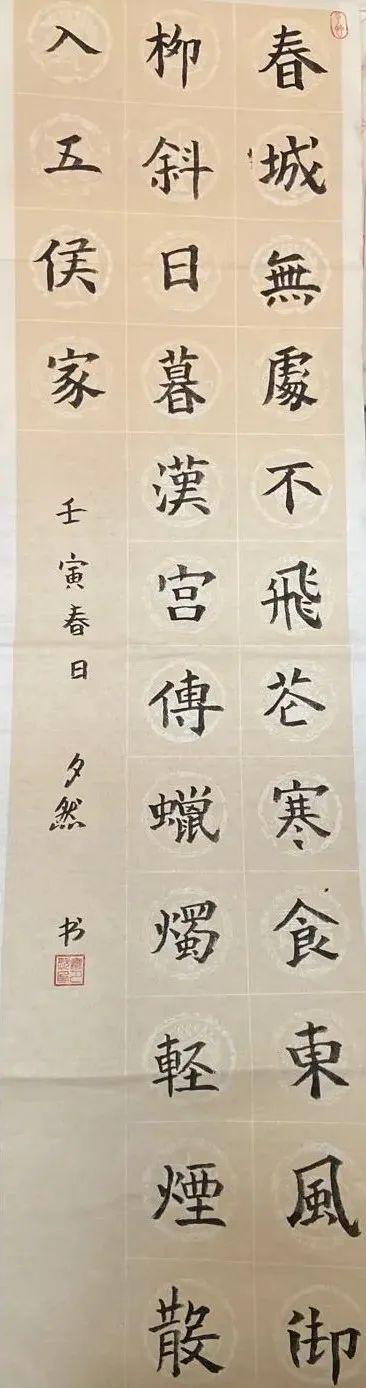 春城無處不飛花寒食東風御
柳斜日暮漢宫傳蠟燭輕煙散
入五侯家
壬寅春日 夕然 书